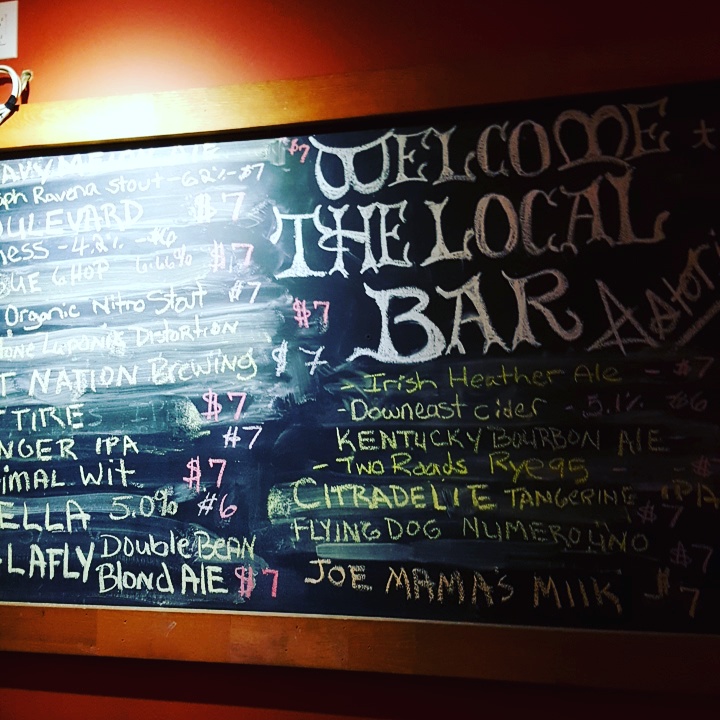 $7
oph Ravena Stout - 6.2% - $7
OULEVARD $7
ness - 4.2% - $6
UE & HOP 6.66% $7
Organic Nitro Stout $7
tone Luponic Distortion $7
T NATION Brewing $7
TIRE $7
NGER IPA $7
imal Wit $7
ELLA 5.0% $6
LAFLY Double BEAN
Blond ALE $7
WELCOME
THE LOCAL
BAR Astori
- Irish Heather Ale - $7
- Downeast cider - 5.1% $6
KENTUCKY BOURBON ALE
- Two Roads Rye 95 - $
CITRADELIE TANGERINE IPA
$7
FLYING DOG NUMERO UNO
$7
JOE MAMA'S MIlK $7